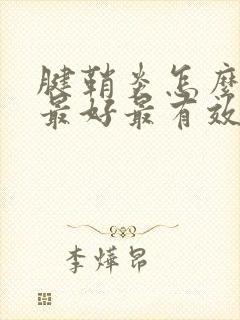 腱鞘炎怎麽
最好最有效
李燁昂